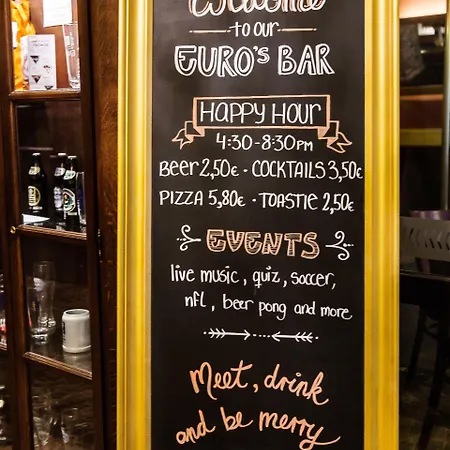 Welcome
to our
EURO'S BAR
HAPPY HOUR
4:30-8:30PM
BEER 2,50€ - COCKTAILS 3,50€
PIZZA 5,80€ - TOASTIE 2,50€
EVENTS
live music, quiz, soccer,
nfl, beer pong and more
Meet, drink
and be merry